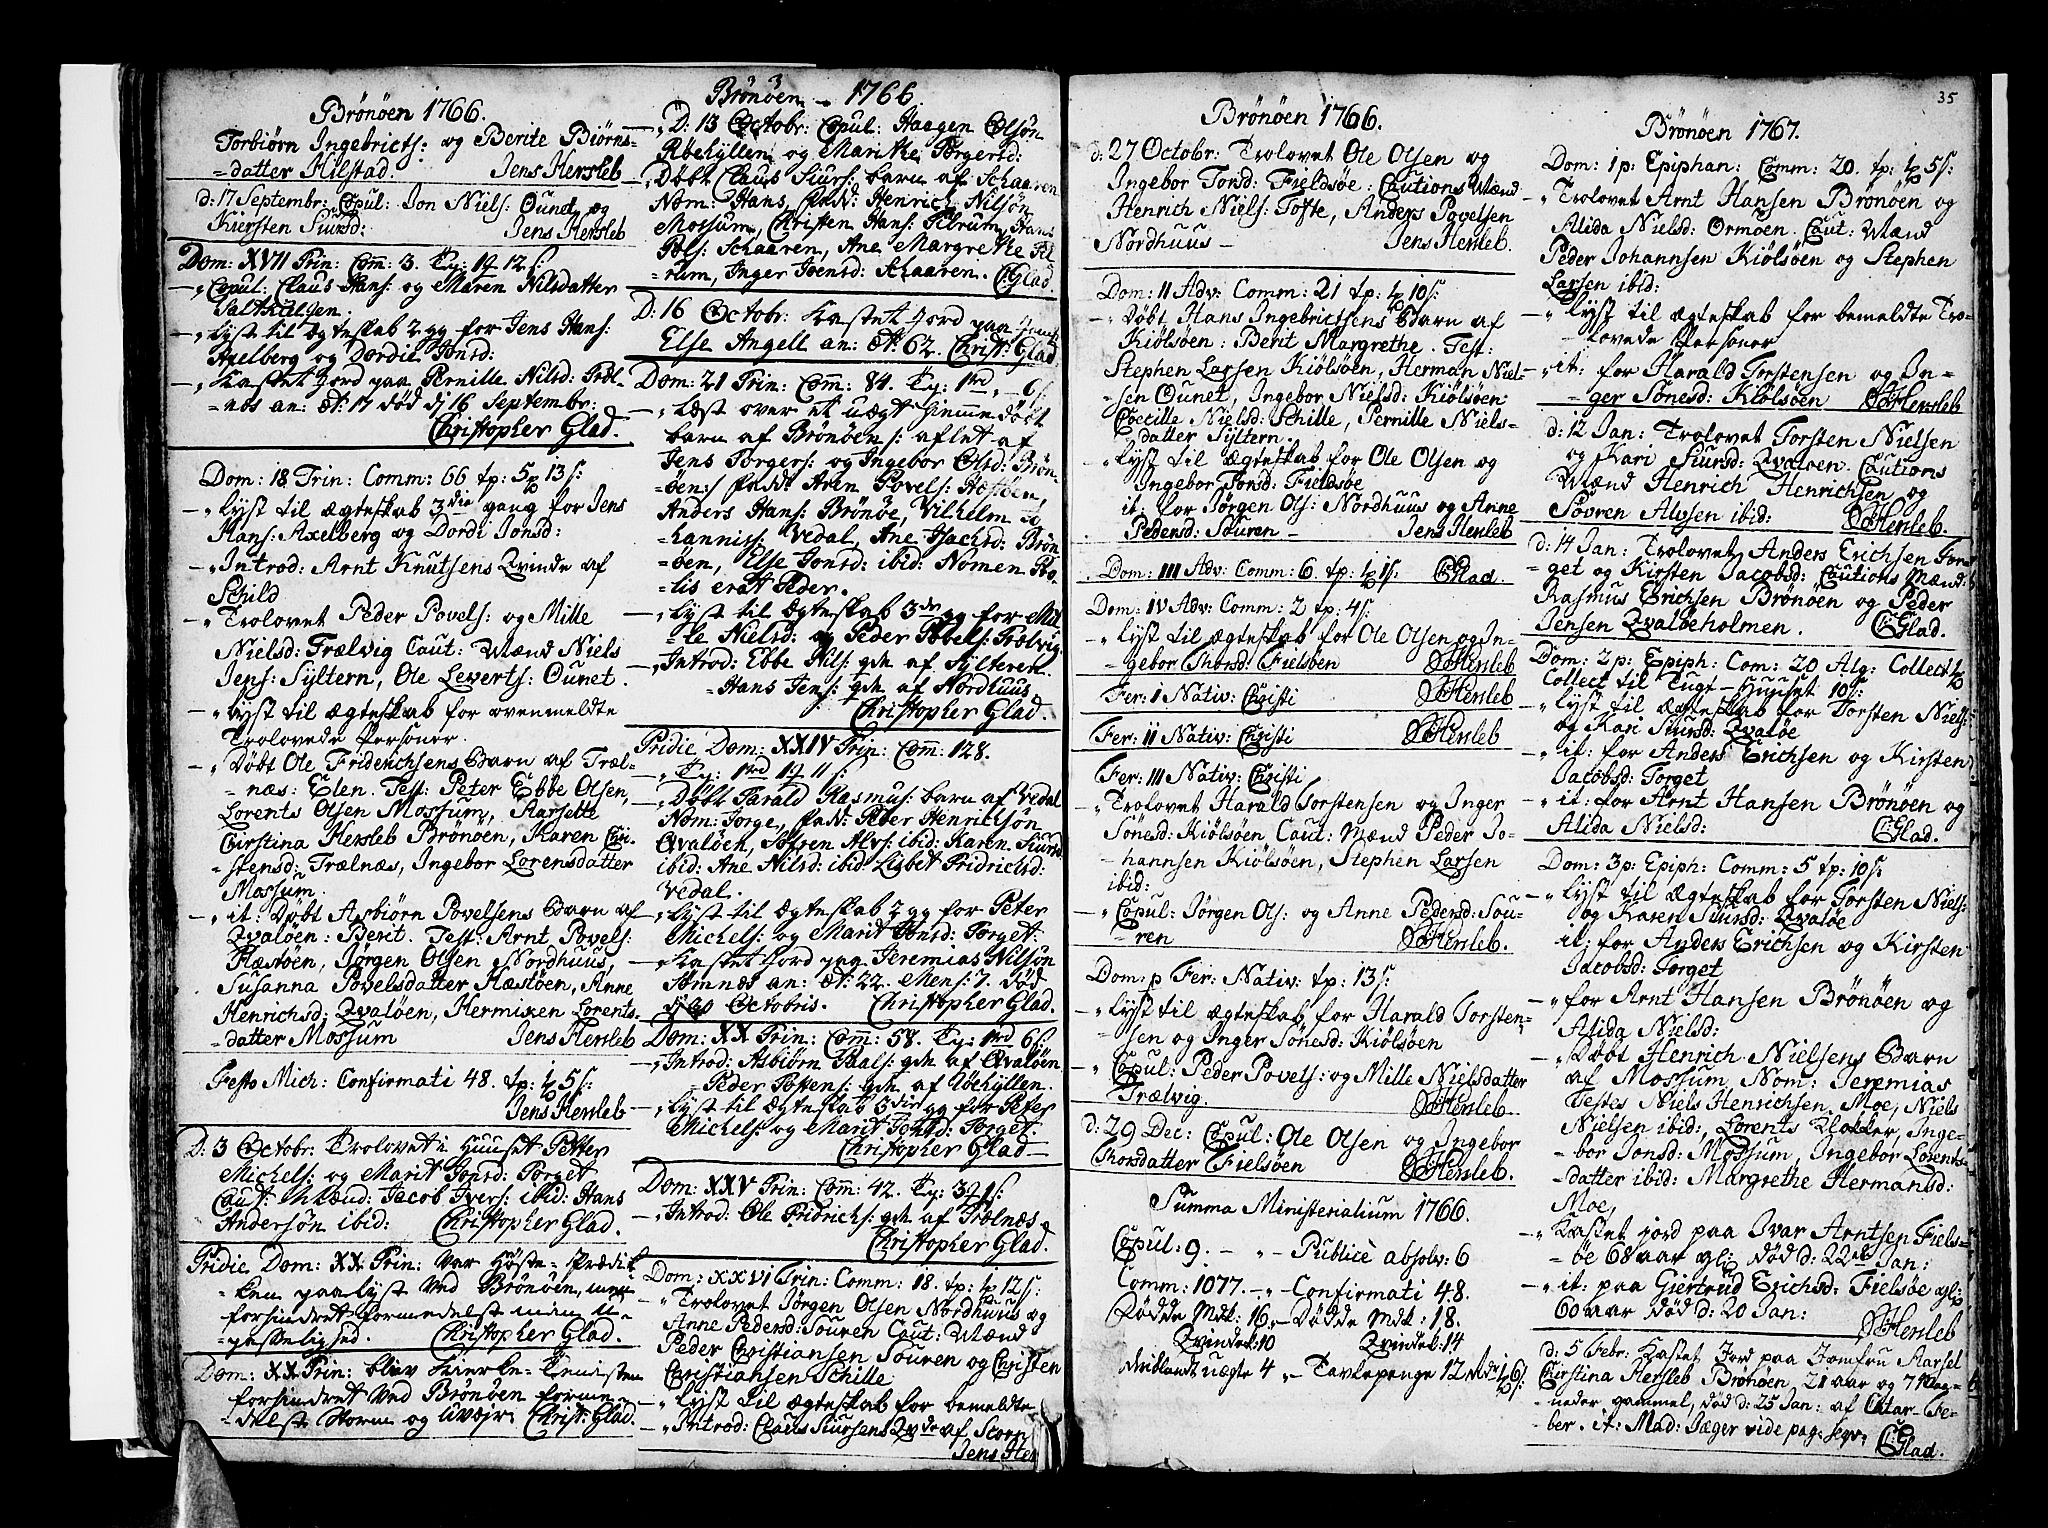 Brønøen 1766.
Torbiørn Ingebrictſ: og Berite Biørns-
=datter Hilstad. Jens Hersleb
d: 17 Septembr: Copul: Jon Nielſ: Ounet og
Kiersten Siursd: Jens Hersleb
Dom: XVII Trin: Com̄: 3. Tp: 12 ſ:
–„ Copul: Claus Hanſ: og Maren Nilsdatter
–„ Lyst til Ægteskab 2 gg for Jens Hanſ:
Axelberg og Dordie Jonsd:
–„ Kastet Jord paa Pernille Nilsd: Træl-
=nes an: æt: 17 død dj 16 Septembr:
Christopher Glad.
Dom: 18 Trin: Comm: 66 tp: 5 13 ſ:
–„ Lyst til ægteskab 3die gang for Jens
Hanſ: Axelberg og Dordi Jonsd:
–„ Introd: Arnt Knutsens Qvinde af
Schild
–„ Trolovet Peder Povelſ: og Mille
Nielsd: Trælvig Caut: Mænd Niels
Jenſ: Sÿltern, Ole Levertſ: Ounet.
–„ Lyst til ægteskab for ovenmeldte
Trolovede Personer.
–„ Døbt Ole Friderichsens Barn af Træl-
=næs: Elen. Test: Peter Ebbe Olsen,
Lorents Olsen Mossum, Aarsette
Chirstina Hersleb Brønøen, Karen Chri-
=stensd: Trælnæs, Ingebor Lorensdatter
Mossum.
–„ it: Døbt Asbiørn Povelsens Barn af
Qvaløen: Berit. Test: Arnt Povelſ:
Hæstøen, Jørgen Olsen Nordhuus,
Susanna Povelsdatter Hæstøen, Anne
Henrichsd: Qvaløen, Hermiken Lorents-
=datter Mossum Jens Hersleb
Festo Mich: Confirmati 48. tp: 5 ſ:
Jens Hersleb
D: 3 Octobr: Trolovet i Huuset Petter
Michelſ: og Marit Jonsd: Torget
Caut: Mænd: Jacob Iverſ: ibid: Hans
Andersøn ibid: Christopher Glad.
Pridie Dom: XX Trin: var Høste-Prædik
ken paalyst ved Brønøen, men
forhindret formedelst min U-
=passelighed. Christopher Glad.
Dom: XX Trin: blev Tienisten
forhindret ved Brønøen forme-
=delst Storm og uvejr Christ: Glad.
Brønøen 1766
–„ D: 13 Octobr: Copul: Haagen Olsøn
Røehÿllen og Marithe Torgersd:
–„ Døbt Claus Siurſ: barn af Schaaren
Nom: Hans, fad: Henrich Nilsøn
Mossum, Christen Hanſ: Tilrum, Hans
Polſ: Schaaren, Ane Margrethe Til
=rum, Inger Joensd: Schaaren. C: Glad.
D: 16 Octobr: Kastet Jord paa
Else Angell an: æt: 62. Christ: Glad
Dom: 21 Trin: Com̄: 84. Tp: 1rd „ 6 ſ
–„ Læst over et uægt hiemmedøbt
barn af Brønøen ſ: aflet af
Jens Torgerſ: og Ingebor Olsd: Brøn-
=øen:/ fad: Aren Povelſ: Hæstøen,
Anders Hanſ: Brønøe, Vilhelm Jo
hannisſ: Vedal, Ane Isachsd: Brøn
=øen, Else Jonsd: ibid: Nomen Pro-
lis erat Peder.
–„ Lyst til Ægteskab 3die gg for Mil-
le Nielsd: og Peder Povelſ: Trælvig
–„ Introd: Ebbe Nilſ: qde af Sÿlteren
=Hans Jenſ: qde af Nordhuus
Christopher Glad.
Pridie Dom: XXIV Trin: Com̄: 128.
–„ Tp: 1rd 11 ſ:
–„ Døbt Tarald Rasmusſ: barn af Vedal
Nom: Torge, fad: Peder Henrichsøn
Qvaløen, Søfren Alvſ: ibid: Karen Siursd
ibid: Ane Nilsd: ibid: Lisbet Fridrichsd:
Vedal.
–„ Lyst til Ægteskab 2 gg for Peter
Michelſ: og Marit Jonsd: Torget:
–„ Kastet Jord paa Jeremias Nilsøn
Sømnæs an: æt: 22. Menſ: 7. død
dj 20 Octobris. Christopher Glad.
Dom: XX Trin: Com̄: 58. Tp: 1rd 6 ſ:
–„ Introd: Asbiørn Paalſ: qde af Qvaløen
=Peder qde af Røehÿllen.
–„ Lyst til Ægteskab 3die gg for Peter
Michelſ: og Marit Jonsd: Torget:
Christopher Glad –
Dom: XXV Trin: Com̄: 42. Tp: 3 1 ſ:
–„ Introd: Ole Fridrichſ: qde af Trælnes
Christopher Glad.
Dom: XXVI Trin: Comm: 18. tp: 12 ſ:
–„ Trolovet Jørgen Olsen Nordhuus og
Anne Pedersd: Souren Caut: Mænd
Peder Christiansen Souren og Christen
Christiansen Schille
–„ Lyst til ægteskab for bemeldte
–„ Introd: Claus Siursens Qvde af
Jens Her
Brønøen 1766.
d: 27 Octobr: Trolovet Ole Olsen og
Ingebor Tonsd: Fieldsøe: Cautions Mænd
Henrich Nielſ: Tofte, Anders Povelsen
Nordhuus – Jens Hersleb.
Dom: II Adv: Comm: 21 tp: 10 ſ:
–„ Døbt Hans Ingebrictsens Barn af
Kiølsøen: Berit Margrethe. Test:
Stephen Larsen Kiølsøen, Herman Niel-
sen Ounet, Ingebor Nielsd: Kiølsøen
Coecille Nielsd: Schille, Pernille Niels-
datter Sÿltern.
–„ Lyst til ægteskab for Ole Olsen og
Ingebor Tonsd: Fieldsøe
it: for Jørgen Olſ: Nordhuus og Anne
Pedersd: Souren – Jens Hersleb
Dom: III Adv: Comm: 6. tp: 1 ſ: CGlad.
Dom: IV Adv: Comm: 2 tp: 4 ſ:
–„ Lyst til ægteskab for Ole Olsen og In-
=gebor Thorsd: Fielsøen JHersleb
Fer: I Nativ: Christi JHersleb
Fer: II Nativ: Christi JHersleb
Fer: III Nativ: Christi
–„ Trolovet Harald Torstensen og Inger
Sønesd: Kiølsøen, Caut: Mænd Peder Jo-
=hannsen Kiølsøen, Stephen Larsen
ibid:
–„ Copul: Jørgen Olſ: og Anne Pedersd: Sou-
=ren JHersleb.
Dom: p Fer: Nativ: tp: 13 ſ:
–„ Lyst til ægteskab for Harald Torsten-
=sen og Inger Sønesd: Kiølsøen
–„ Copul: Peder Povelſ: og Mille Nielsdatter
Trælvig. JHersleb.
d: 29 Dec: Copul: Ole Olsen og Ingebor
Thorsdatter Fielsøen JHersleb.
Summa Ministerialium 1766.
Copul: 9. – „ – Publicè absolv: 6
Comm: 1077. – „ – Confirmati 48.
Fødde Mdk: 16 „ – Dødde Mdk: 18.
Qvindek: 10 Qvindek: 14
deriblandt uægte 4 „ – Tavlepenge 12 6 ſ:
35
Brønøen 1767.
Dom: 1 p: Epiphan: Comm: 20. tp: 5 ſ:
–„ Trolovet Arnt Hansen Brønøen og
Alida Nielsd: Ormøen. Caut: Mænd
Peder Johannsen Kiølsøen og Stephen
Larsen ibid:
–„ Lyst til ægteskab for bemeldte Tro-
=lovede Personer
–„ it: for Harald Torstensen og In-
=ger Sønesd: Kiølsøen JHersleb
d: 12 Jan: Trolovet Torsten Nielsen
og Kari Siursd: Qvaløen. Cautions
Mænd Henrich Henrichsen og
Søvren Alvsen ibid: JHersleb.
d: 14 Jan: Trolovet Anders Erichsen Tor-
get og Kirsten Jacobsd: Cautions Mænd:
Rasmus Erichsen Brønøen og Peder
Jensen Qvaløeholmen. C: Glad.
Dom: 2 p: Epiph: Com: 20 Alg: Collect
Collect til Tugt-Huuset 10 ſ:
–„ Lyst til ægteskab for Torsten Nielſ:
og Kari Siursd: Qvaløe
–„ it: for Anders Erichsen og Kirsten
Jacobsd: Torget
–„ it: for Arnt Hansen Brønøen og
Alida Nielsd: C: Glad.
Dom: 3 p: Epiph: Comm: 5 tp: 10 ſ:
–„ Lyst til ægteskab for Torsten Nielſ:
og Karen Siursd: Qvaløe
it: for Anders Erichsen og Kirsten
Jacobsd: Torget
–„ for Arnt Hansen Brønøen og
Alida Nielsd:
–„ Døbt Henrich Nielsens Barn
af Mossum, Nom: Jeremias
Testes Niels Henrichsen Moe, Niels
Nielsen ibid:, Lorents Klokker, Inge-
=bor Jonsd: Mossum, Ingebor Lorents-
=datter ibid: Margrethe Hermansd:
Moe,
–„ Kastet jord paa Ivar Arntsen Fiels-
=øe 68 aar gl: død d: 22 Jan:
–„ it: paa Giertrud Erichsd: Fielsøe gl:
60 aar død d: 20 Jan: JHersleb
d: 5 Febr: Kastet Jord paa Jomfru Aarset
Chirstina Hersleb Brønøen 21 aar og 7 Maa-
neder gammel, død d: 25 Jan: af Catar-Fe-
ber. it: Mad: Jæger vide pag: seqv: C: Glad.